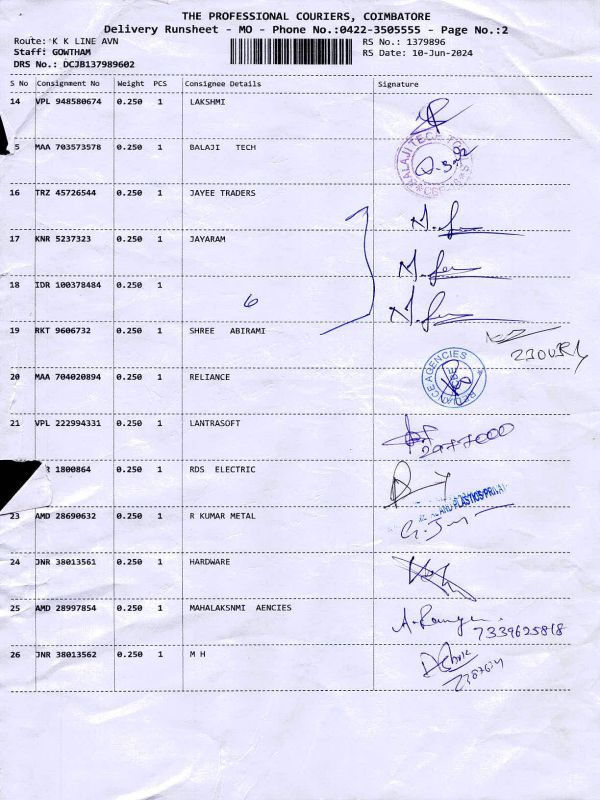 THE PROFESSIONAL COURIERS, COIMBATORE
Delivery Runsheet - MO - Phone No.:0422-3505555 - Page No.:2
Route: K K LINE AVN
RS No.: 1379896
Staff: GOWTHAM
RS Date: 10-Jun-2024
DRS No.: DCJB137989602
S No Consignment No Weight PCS Consignee Details Signature
14 VPL 948580674 0.250 1 LAKSHMI
5 MAA 703573578 0.250 1 BALAJI TECH
16 TRZ 45726544 0.250 1 JAYEE TRADERS
17 KNR 5237323 0.250 1 JAYARAM
18 IDR 100378484 0.250 1
6
19 RKT 9606732 0.250 1 SHREE ABIRAMI
20 MAA 704020894 0.250 1 RELIANCE
RELIANCE AGENCIES
21 VPL 222994331 0.250 1 LANTRASOFT
R 1800864 0.250 1 RDS ELECTRIC
AND PLASTICS PRIVAT
23 AMD 28690632 0.250 1 R KUMAR METAL
24 JNR 38013561 0.250 1 HARDWARE
25 AMD 28997854 0.250 1 MAHALAKSNMI AENCIES
7339625818
26 JNR 38013562 0.250 1 M H